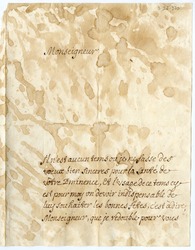 Monseigneur
Il n'est aucun tems où je ne fasse des
voeux bien sinceres pour la santé de
votre Eminence, et l'usage de ce tems cy
est pour moy un devoir indispensable de
luy souhaitter les bonnes fêtes, c'est à dire
Monseigneur, que je redouble pour vous